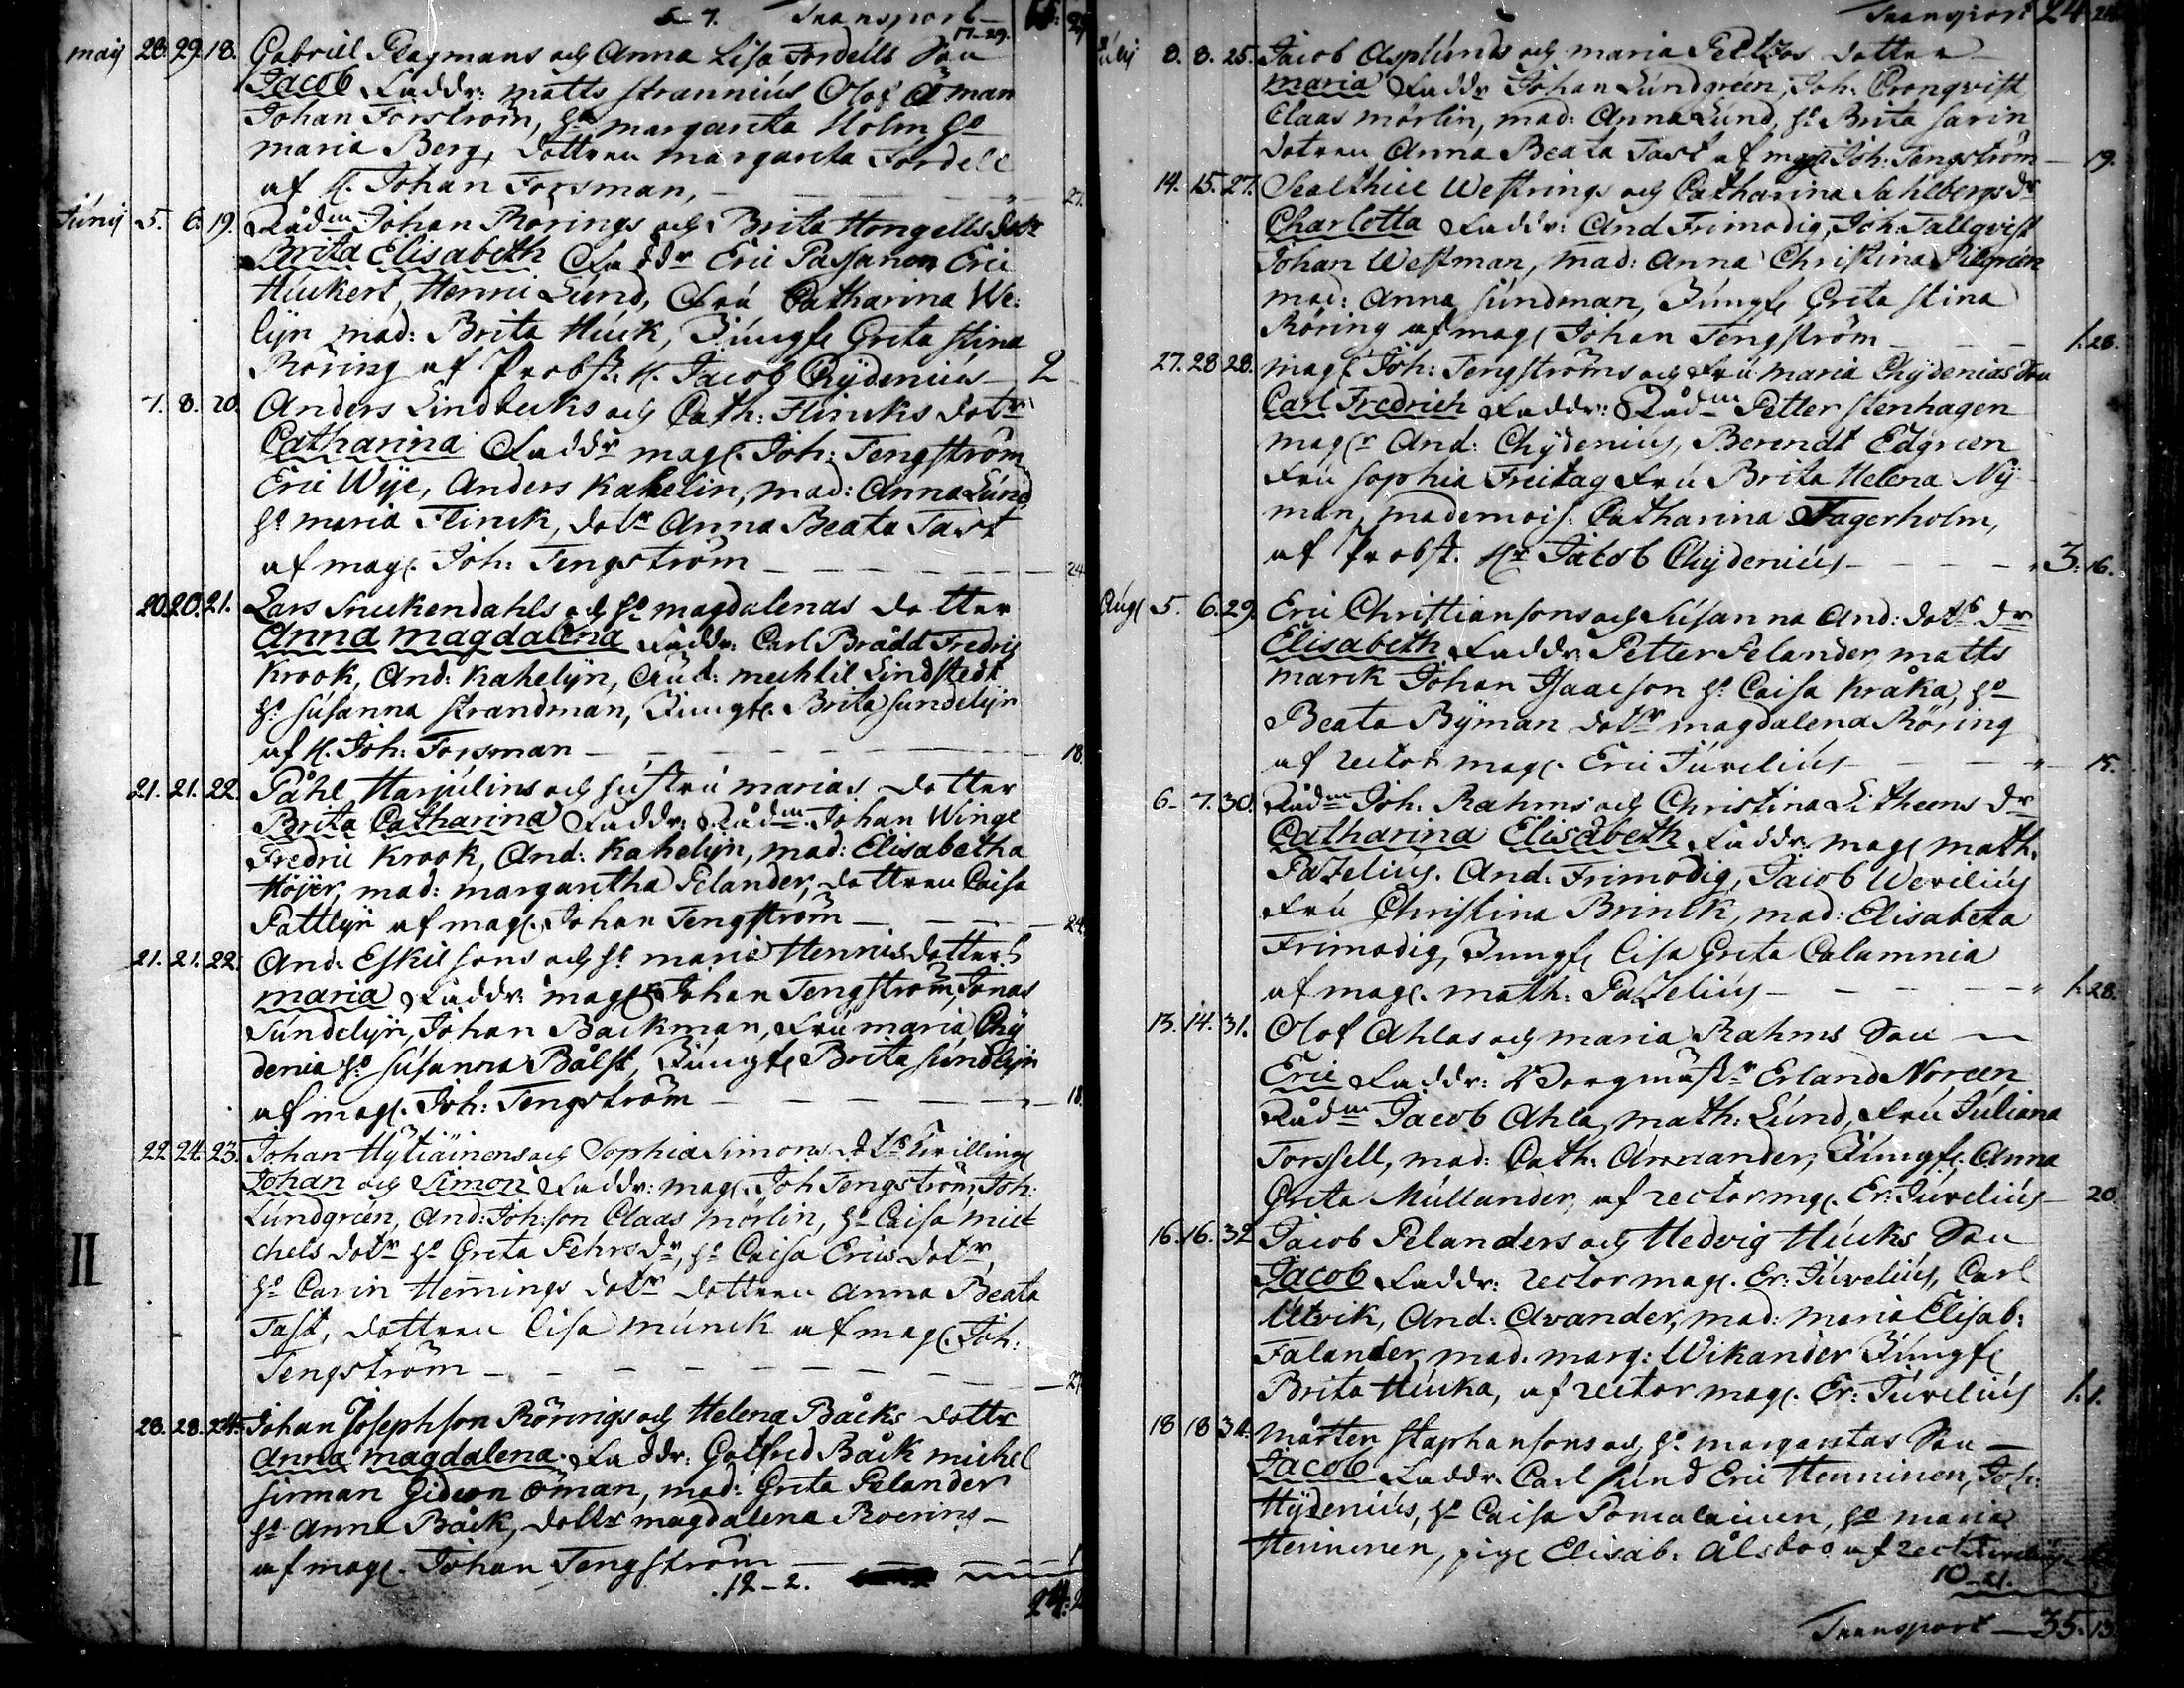 5-7. Transport
17-29.
maij 28. 29. 18. Gabriell Plagmans och Anna Lisa Fordells Son
Jacob Faddr: matts strannius Olof Öman
Johan Forström, Ho margareta Holm, Ho
maria Berg, dottren margareta Fordell
af H. Johan Forsman, 27.
Junij 5. 6. 19. Rådm Johan Rörings och Brita Hongells dotr
Brita Elisabeth Faddr Eric Passanen Eric
Huckert, Henric Lund, Fru Catharina We:
lijn mad: Brita Huck, Jungfr Greta Stina
Röring af Probst. H. Jacob Chydenius 2
7. 8. 20. Anders Lindbecks och Cath: Flincks dotr
Catharina Faddr mag. Joh: Tengström
Eric Wije, Anders Kahelin, mad: Anna Lund
Ho maria Flinck, dotr Anna Beata Tast
af mag. Joh: Tengström 24
20. 20. 21. Lars Snickendahls och Ho magdalenas dotter
Anna magdalena Faddr: Carl Brådd Fredric
Krook, And: Kahelijn, mechtil Lindstedt
Ho Susanna Strandman, Jungfr. Brita Sundelijn
af H. Joh: Forsman 18.
21. 21. 22. Påhl Harjulins och hustru marias dotter
Brita Catharina Faddr: Rådm. Johan Winge
Fredric Krook, And: Kahelijn, mad: Elisabetha
Höijer, mad: margaretha Pelander, dottren Caisa
Pattlijn af mag. Johan Tengström 24.
21. 21. 22. And. Eskilsons och Ho maria Hennis dotters
maria Faddr: mag Johan Tengström, Jonas
Sundelijn, Johan Backman, Fru maria Chy
denia Ho Susanna Bålst, Jungfr Brita Sundelijn
af mag. Joh: Tengström 18.
22. 24. 23. Johan Hytiäinens och Sophia Simons dotrs Tvillingr
Johan och Simon Faddr: mag. Joh Tengström, Joh:
Lundgreen, And: Joh:son Claas Mörlin, Ho Caisa mic
chels dotr Ho Greta Pehrs dr, Ho Caisa Erics dotr,
Ho Carin Hemings dotr dottren Anna Beata
Tast, dottren Lisa munck af mag. Joh:
Tengström 27.
28. 28. 24. Johan Josephson Rörings och Helena Bäcks dottr
Anna magdalena. Faddr: Gotfred Bäck michel
Sirman Gideon Öman, mad: Greta Pelander
Ho Anna Bäck, dottr magdalena Roering
af mag. Johan Tengström
12-2.
24: 2
II
Transport 24
Julij 8. 8. 25. Jacob Asplunds och maria Peldos dotter
maria Faddr Johan Lundgreen, Joh: Cronqvist
Claas mörlin, mad: Anna Lund, Ho Brita Sarin
dotren Anna Beata Tast af mag Joh: Tengström 19.
14. 15. 27. Sealthiel Westrings och Catharina Sahlbergs dr
Charlotta Faddr: And Frimodig, Joh: Tallqvist
Johan Westman, mad: Anna Christina Pilgreen
mad: Anna Sundman, Jungfr Greta Stina
Röring af mag Johan Tengström 1: 28.
27. 28. 28. mag Joh: Tengströms och Fru maria Chydenias Son
Carl Fredrich Faddr: Rådm Petter Stenhagen
magr And: Chydenius, Berendt Edgreen
Fru Sophia Freitag Fru Brita Helena Ny
man, mademois. Catharina Fagerholm,
af Probst. Hr Jacob Chydenius 3: 16.
Aug 5. 6. 29. Eric Christiansons och Susanna And: dotrs dr
Elisabeth Faddr Petter Pelander, matts
marck Johan Isaacson Ho Caisa Kråka, Ho
Beata Byman dotr magdalena Röring
af rector mag. Eric Juvelius 15.
6- 7. 30. Rådm Joh. Rahms och Christina Litheens dr
Catharina Elisabeth Faddr: mag math.
Pazelius. And. Frimodig, Jacob Werelius
Fru Christina Brinck, mad: Elisabeta
Frimodig, Jungfr Lisa Greta Calamnia
af mag. math: Pazelius 1: 28.
13. 14. 31. Olof Ahlas och maria Rahms Son
Eric Faddr: Borgmästr Erland Noreen
Rådm Jacob Ahla, math: Lund, Fru Juliana
Torssell, mad: Cath. Avander, Jungfr. Anna
Greta Mullander, af rector mg. Er: Juvelius 20.
16. 16. 32 Jacob Pelanders och Hedvig Hucks Son
Jacob Faddr: rector mag. Er: Juvelius, Carl
Utvik, And: Avander, mad: maria Elisab:
Falander mad. marg: Wikander Jungfr
Brita Hucka, af rector mag. Er: Juvelius 1: 1.
18 18 34. Mårten Staphansons och Ho margaretas Son
Jacob Faddr. Carl Sund Eric Henninen, Joh:
Hydenius, Ho Caisa Pomalainen, Ho maria
Henninen, pig Elisab: Ålsboo af rect: Juvelius
10-21.
Transport 35: 13